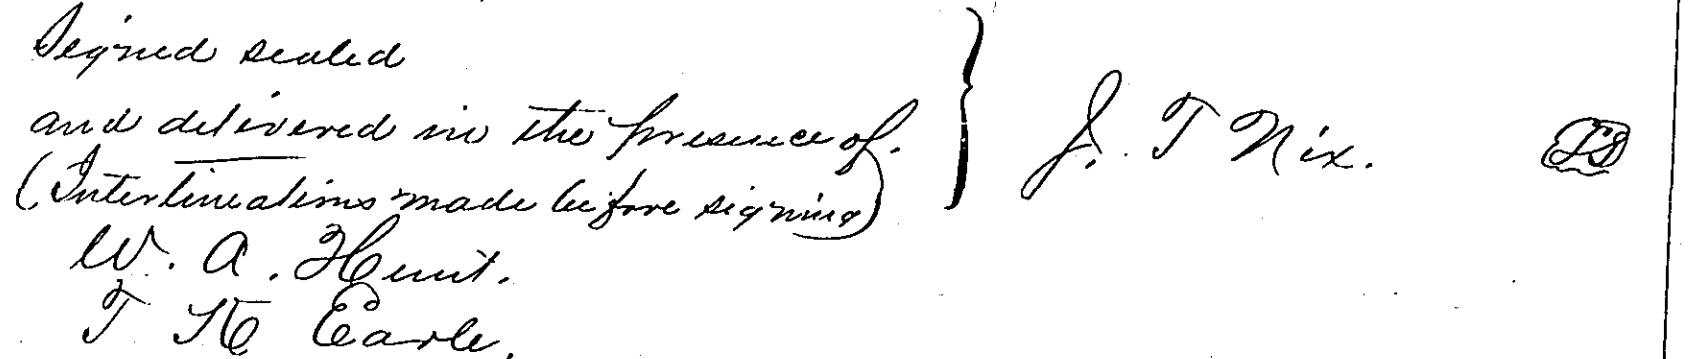 Signed sealed
and delivered in the presence of.
(Interlineations made before signing)
W. A. Hunt.
T K Earle.
J. T Nix.
LS